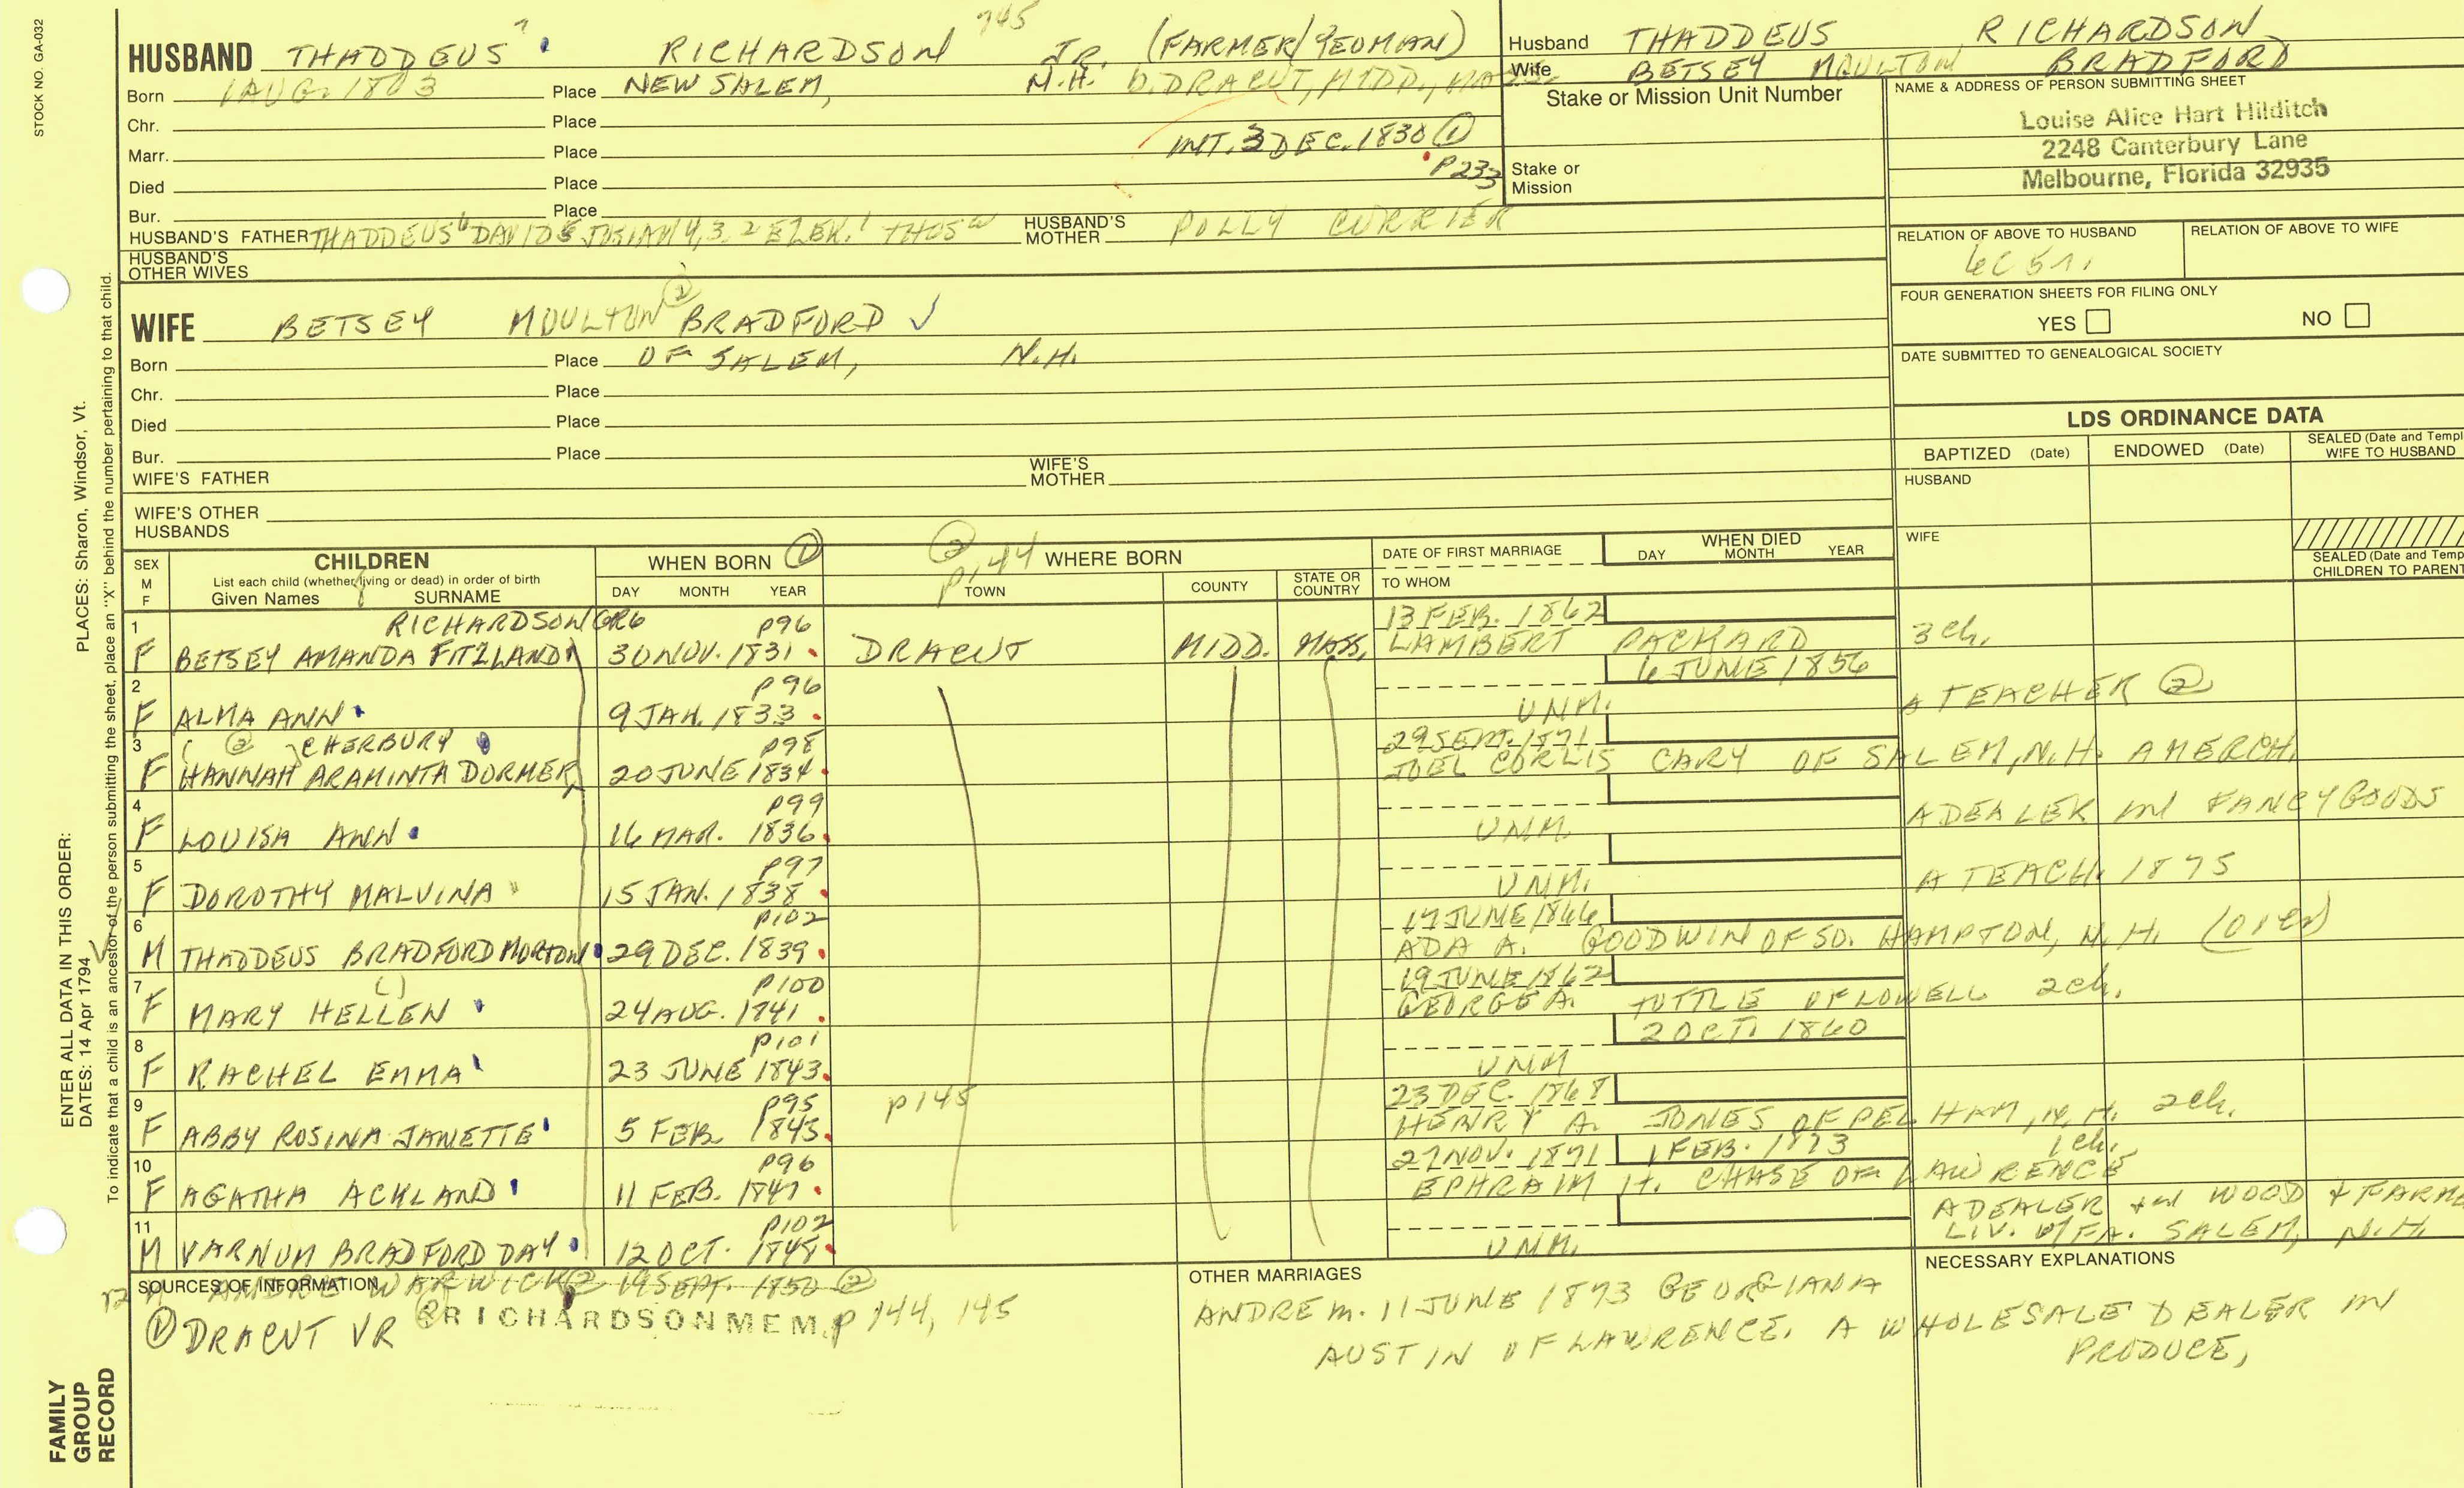 STOCK NO. GA-032
745
HUSBAND THADDEUS 7 RICHARDSON JR. (FARMER/YEOMAN)
Born 1 AUG. 1803 Place NEW SALEM, N.H. D. DRACUT, MIDD., MASS
Chr. Place
Marr. Place INT. 3 DEC. 1830 ①
Died Place P233
Bur. Place
HUSBAND'S FATHER THADDEUS 6 DAVID 5 JOSIAH 4, 3, 2 EZEK. 1 THOS W HUSBAND'S MOTHER POLLY CURRIER
HUSBAND'S OTHER WIVES
Husband THADDEUS RICHARDSON
Wife BETSEY MOULTON BRADFORD
Stake or Mission Unit Number
Stake or Mission
NAME & ADDRESS OF PERSON SUBMITTING SHEET
Louise Alice Hart Hilditch
2248 Canterbury Lane
Melbourne, Florida 32935
RELATION OF ABOVE TO HUSBAND RELATION OF ABOVE TO WIFE
FOUR GENERATION SHEETS FOR FILING ONLY
YES NO
DATE SUBMITTED TO GENEALOGICAL SOCIETY
WIFE BETSEY MOULTON ② BRADFORD ✓
Born Place OF SALEM, N.H.
Chr. Place
Died Place
Bur. Place
WIFE'S FATHER WIFE'S MOTHER
WIFE'S OTHER HUSBANDS
LDS ORDINANCE DATA
BAPTIZED (Date) ENDOWED (Date) SEALED (Date and Templ WIFE TO HUSBAND
HUSBAND
WIFE
SEALED (Date and Temp CHILDREN TO PARENT
SEX M F
CHILDREN
List each child (whether living or dead) in order of birth
Given Names SURNAME
WHEN BORN ①
DAY MONTH YEAR
② P144 WHERE BORN
TOWN COUNTY STATE OR COUNTRY
DATE OF FIRST MARRIAGE
TO WHOM
WHEN DIED
DAY MONTH YEAR
1 RICHARDSON GR6 P96 13 FEB. 1862
F BETSEY AMANDA FITZLAND 30 NOV. 1831 DRACUT MIDD. MASS, LAMBERT PACKARD 3 ch.
2 P96 6 JUNE 1856
F ALMA ANN 9 JAN. 1833 UNM. A TEACHER ②
3 ( ② ) CHERBURY P98 29 SEPT. 1871
F HANNAH ARAMINTA DORMER 20 JUNE 1834 JOEL CORLIS CARY OF SALEM, N.H. A MERCH.
4 P99
F LOUISA ANN 16 MAR. 1836 UNM. A DEALER IN FANCY GOODS
5 P97
F DOROTHY MALVINA 15 JAN. 1838 UNM. A TEACH. 1875
6 P102 17 JUNE 1866
M THADDEUS BRADFORD MORTON 29 DEC. 1839 ADA A. GOODWIN OF SO. HAMPTON, N.H. (over)
7 ( ) P100 19 JUNE 1862
F MARY HELLEN 24 AUG. 1841 GEORGE A. TUTTLE OF LOWELL 2 ch.
8 P101 2 OCT. 1860
F RACHEL EMMA 23 JUNE 1843 UNM
9 P95 P145 23 DEC. 1868
F ABBY ROSINA JANETTE 5 FEB. 1845 HENRY A. JONES OF PELHAM, N.H. 2 ch.
10 P96 27 NOV. 1871 1 FEB. 1873 1 ch.
F AGATHA ACKLAND 11 FEB. 1847 EPHRAIM H. CHASE OF LAWRENCE
11 P102 A DEALER IN WOOD & FARME
M VARNUM BRADFORD DAY 12 OCT. 1848 UNM. LIV. W/FA. SALEM, N.H.
12 M ANDRE WARWICK ② 19 SEPT. 1850 ②
SOURCES OF INFORMATION
① DRACUT VR ② RICHARDSON MEM. P 144, 145
OTHER MARRIAGES
ANDRE m. 11 JUNE 1873 GEORGIANA
AUSTIN OF LAWRENCE. A WHOLESALE DEALER IN
PRODUCE,
NECESSARY EXPLANATIONS
ENTER ALL DATA IN THIS ORDER:
DATES: 14 Apr 1794 PLACES: Sharon, Windsor, Vt.
To indicate that a child is an ancestor of the person submitting the sheet, place an "X" behind the number pertaining to that child.
FAMILY
GROUP
RECORD